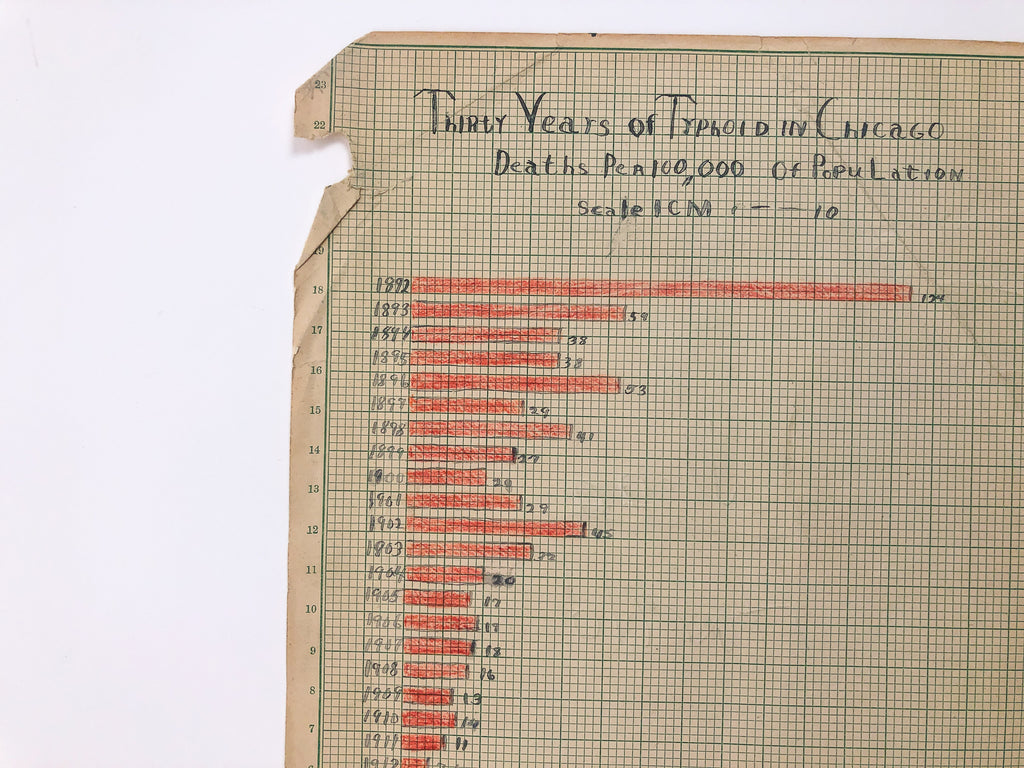 23
22
Thirty Years of Typhoid in Chicago
Deaths Per 100,000 Of Population
Scale 1 CM - - - 10
19
18 1892 124
1893
17 1894 38
1895 38
16 1896 53
15 1897 29
1898
14 1899 27
1900
13 1901 29
12 1902 45
1903
11 1904 20
1905 17
10 1906
1907 18
9 1908 16
8 1909 13
1910 14
7 1911 11
1912